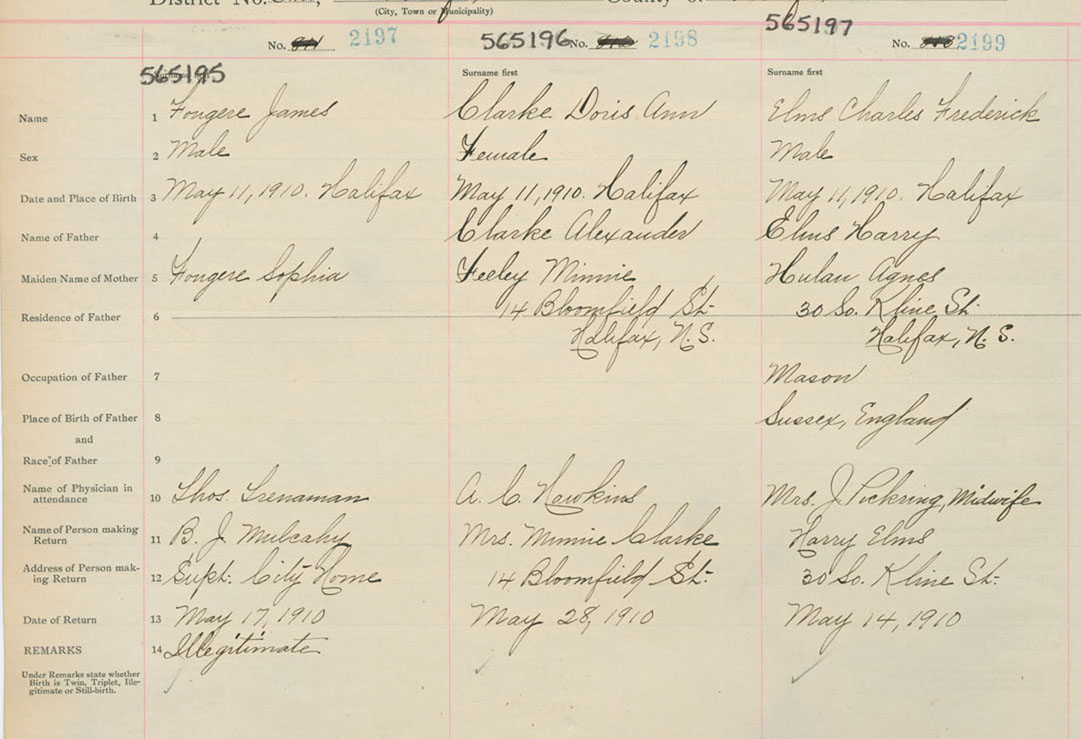 District No.
County of
(City, Town or Municipality)
565197
No. 2197
565196 No. 2198
No. 2199
565195
Surname first
Surname first
Name 1 Fougere James Clarke Doris Ann Elms Charles Frederick
Sex 2 Male Female Male
Date and Place of Birth 3 May 11, 1910. Halifax May 11, 1910. Halifax May 11, 1910. Halifax
Name of Father 4 Clarke Alexander Elms Harry
Maiden Name of Mother 5 Fougere Sophia Feeley Minnie Hulan Agnes
Residence of Father 6 14 Bloomfield St. 30 So. Kline St.
Halifax, N.S. Halifax, N.S.
Occupation of Father 7 Mason
Place of Birth of Father 8 Sussex, England
and
Race of Father 9
Name of Physician in
attendance 10 Thos. Trenaman A. C. Hawkins Mrs. J. Pickring, Midwife
Name of Person making
Return 11 B. J. Mulcahy Mrs. Minnie Clarke Harry Elms
Address of Person mak-
ing Return 12 Supt. City Home 14 Bloomfield St. 30 So. Kline St.
Date of Return 13 May 17, 1910 May 28, 1910 May 14, 1910
REMARKS 14 Illegitimate
Under Remarks state whether
Birth is Twin, Triplet, Ille-
gitimate or Still-birth.